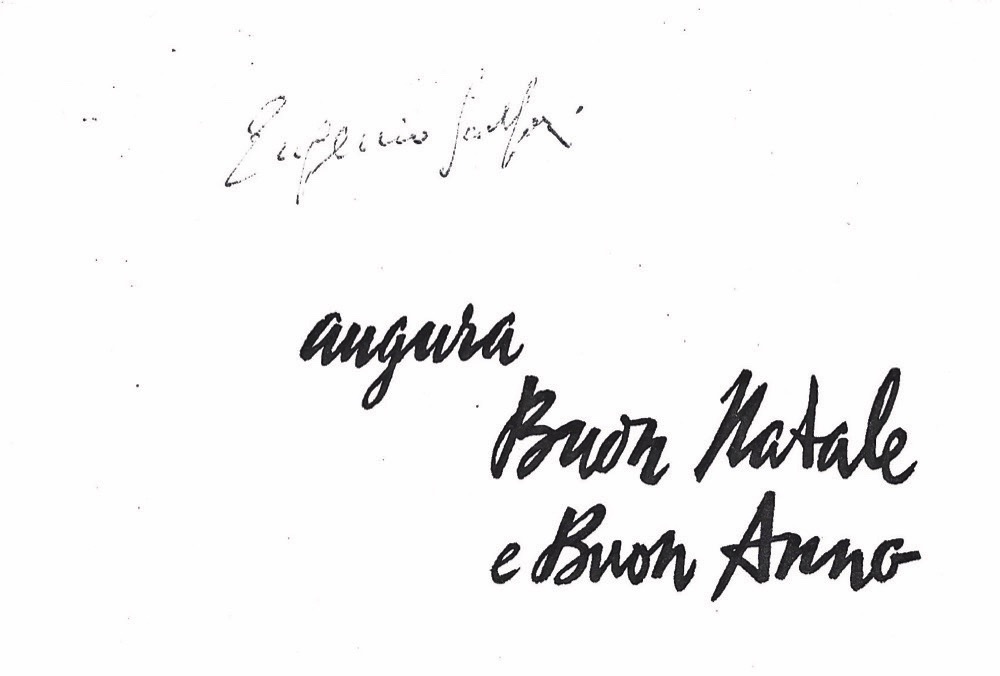 Eugenio Scalfari
augura
Buon Natale
e Buon Anno